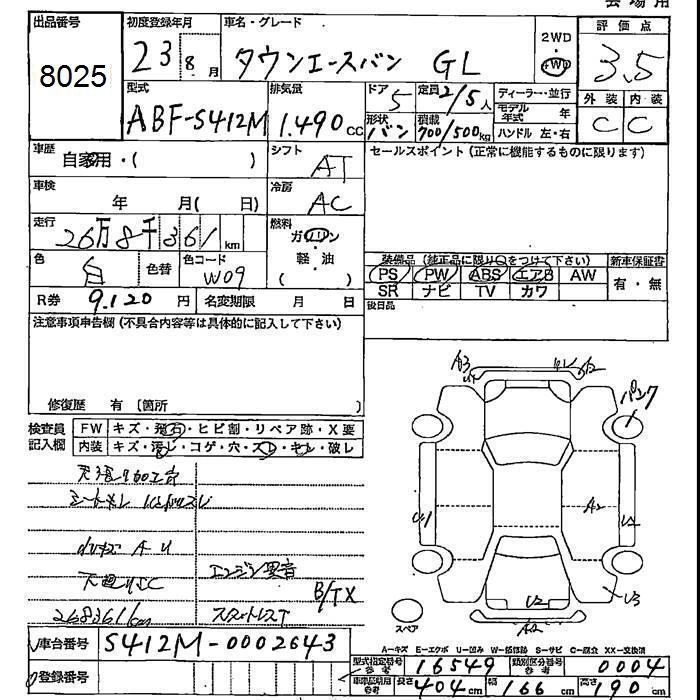 会場用
出品番号
8025
初度登録年月
23 8月
車名・グレード
タウンエースバン GL
2WD
4WD
評価点
3.5
外装 内装
C C
型式
ABF-S412M
排気量
1.490cc
ドア
5
定員
2/5人
形状
バン
積載
700/500kg
ディーラー・並行
モデル年式 年
ハンドル 左・右
車歴
自家用・( )
シフト
AT
セールスポイント(正常に機能するものに限ります)
車検
年 月( 日)
冷房
AC
走行
26万8千361km
燃料
ガソリン
軽・油
( )
色
白
色替
色コード
W09
装備品(純正品に限り○をつけて下さい)
PS PW ABS エアB AW
SR ナビ TV カワ
新車保証書
有・無
R券
9.120円
名変期限 月 日
後日品
注意事項申告欄(不具合内容等は具体的に記入して下さい)
修復歴 有〔箇所 〕
検査員
記入欄
FW キズ・飛石・ヒビ割・リペア跡・X要
内装 キズ・汚レ・コゲ・穴・スレ・キレ・破レ
エンジン異音
B/TX
268361km
A3
パンク
A2
U1
U2
U3
スペア
A2
車台番号
S412M-0002643
登録番号
A-キズ E-エクボ U-凹み W-補修跡 S-サビ C-腐食 XX-交換済
型式指定番号
参考
16549
類別区分番号
参考
0004
車車両用参考
長さ 404cm
幅 166cm
高さ 190cm